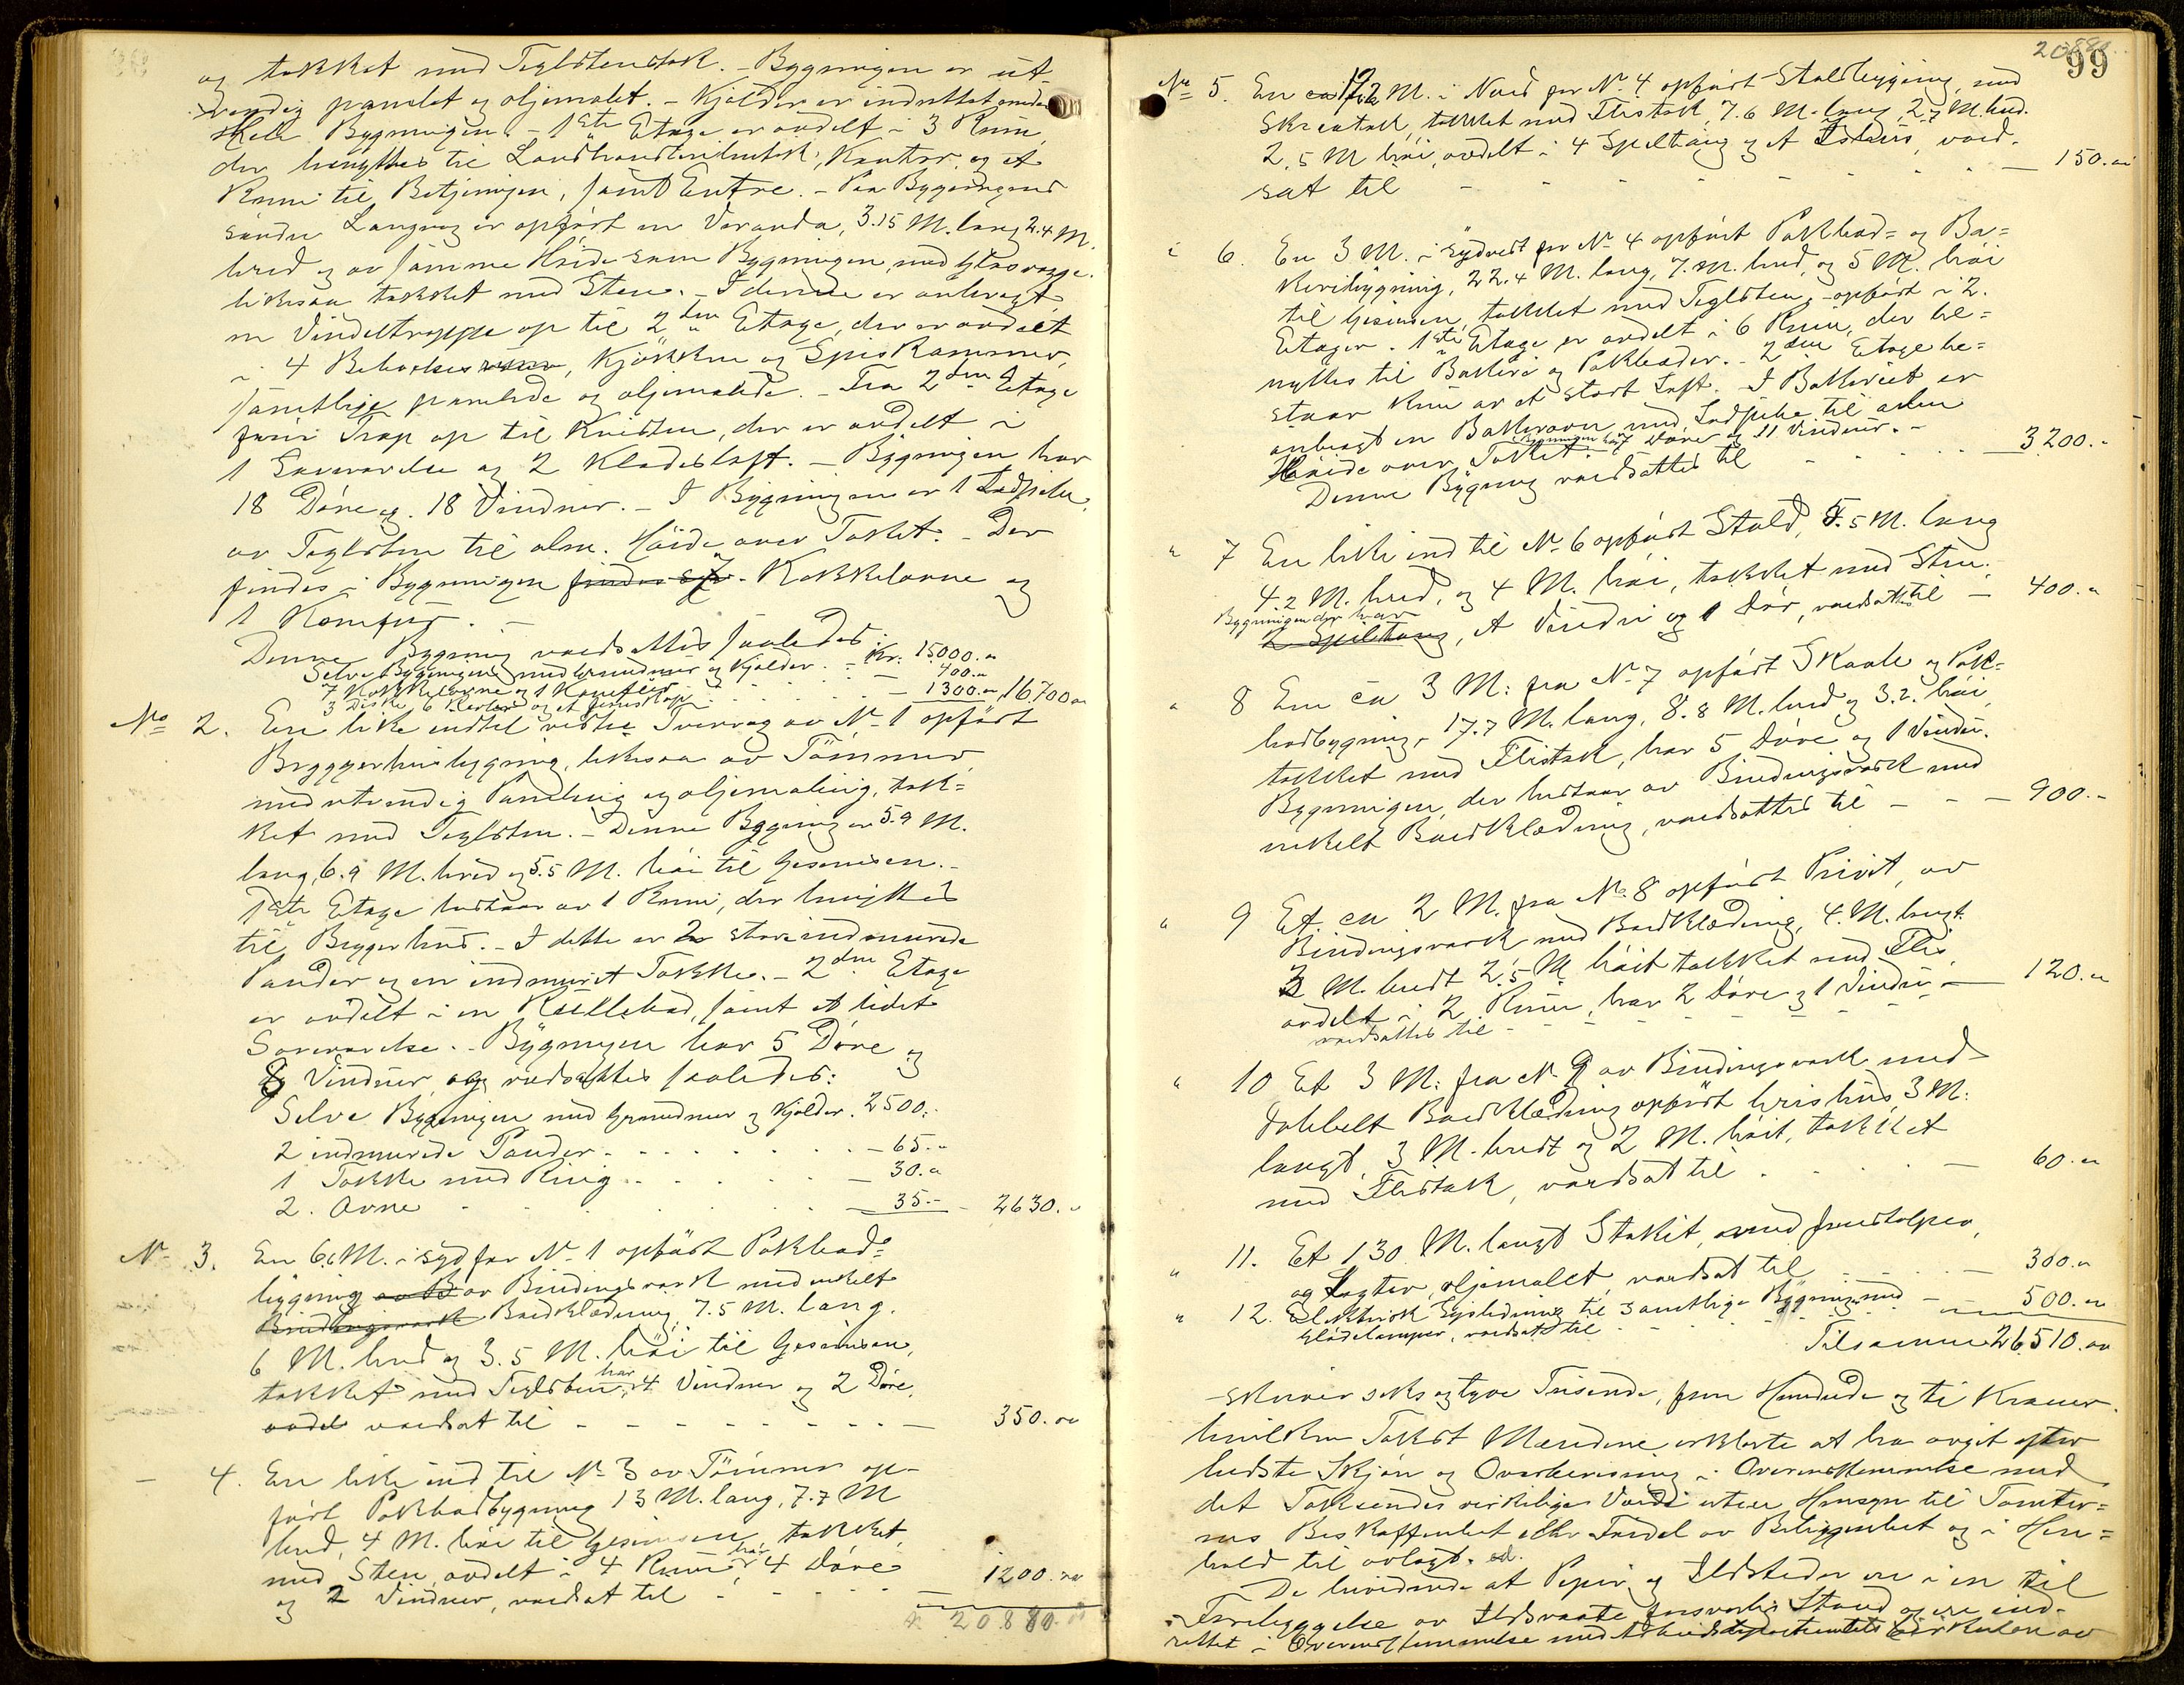 og tækket med Teglstenstak. - Bygningen er ut-
vendig panelet og oljemalet. - Kjælder er indrettet under
hele Bygningen. - 1ste Etage er avdelt i 3 Rum,
der benyttes til Landhandleributik, Kontor og et
Rum til Betjeningen, samt Entre. - Paa Bygningens
søndre Langvæg er opført en Veranda, 3.15 M. lang 2.4 M.
bred og av samme Høide som Bygningen, med Glasvægge,
likesaa tækket med Sten. - I denne er anbragt
en Vindeltrappe op til 2den Etage, der er avdelt
i 4 Beboelsesrum, Kjøkken og Spiskammer,
samtlige panelede og oljemalede. - Fra 2den Etage
fører Trap op til Kvisten, der er avdelt i
1 Soveværelse og 2 Klædesloft. - Bygningen har
18 Døre og 18 Vinduer. - I Bygningen er 1 Ildpibe
av Teglsten til alm. Høide over Taket. - Der
findes i Bygningen findes 7 Kakkelovne og
1 Komfur. -
Denne Bygning værdsættes saaledes:
Selve Bygningen med Grundmur og Kjælder. - Kr. 15000.-
7 Kakkelovne og 1 Komfur - 400.-
3 Diske 6 Reoler og et - 1300.- 16700.-
No 2. En like indtil vestre Tvervæg av No 1 opført
Bryggerhusbygning, likesaa av Tømmer
med utvendig Paneling og oljemaling, tæk-
ket med Teglsten. - Denne Bygning er 5.9 M.
lang, 6.9 M. bred og 5.5 M. høi til Gesimsen. -
1ste Etage bestaar av 1 Rum, der benyttes
til Bryggerhus. - I dette er 2 store indmurede
Pander og en indmuret Takke. - 2den Etage
er avdelt i en Rullebod, samt et lidet
Soveværelse. - Bygningen har 5 Døre og
8 Vinduer, og værdsættes saaledes:
Selve Bygningen med Grundmur og Kjælder. 2500.-
2 indmurede Pander - 65.-
1 Takke med Ring - 30.-
2. Ovne - 35.- 2630.-
No 3. En 6. M. i syd for No 1 opført Pakbod-
bygning av B av Bindingsværk med enkelt
Bindingsværk Bordklædning, 7.5 M. lang,
6 M. bred og 3.5 M. høi til Gesimsen,
tækket med Teglsten, har 4 Vinduer og 2 Døre,
avdel værdsat til - 350.-
- 4. En like ind til No 3 av Tømmer op-
ført Pakbodbygning 13 M. lang, 7.7 M
bred, 4 M. høi til Gesimsen, tækket
med Sten, avdelt i 4 Rum, har 4 Døre
og 2 Vinduer, værdsat til - 1200.-
Kr 20880.-
20880.-
99
No 5. En ca 12 M. i Nord for No 4 opført Staldbygning, med
Skraatak, tækket med Flistak, 7.6 M. lang, 2.7 M. bred.
2.5 M høi, avdelt i 4 Spiltaug og et Ishus, værd-
sat til - 150.-
" 6. En 3 M. i Sydvest for No 4 opført Pakbod- og Ba-
keribygning, 22.4 M. lang, 7. M. bred, og 5 M. høi
til Gesimsen, tækket med Teglsten, - opført i 2.
Etager. 1ste Etage er avdelt i 6 Rum, der be-
nyttes til Bakeri og Pakboder. - 2den Etage be-
staar kun av et stort Loft. I Bakeriet er
anbragt en Bakerovn med Ildpibe til alm
Høide over Taket. - Bygningen har 7 Døre og 11 Vinduer. -
Denne Bygning værdsættes til - 3200.-
" 7 En like ind til No 6 opført Stald, 5.5 M. lang
4.2 M. bred, og 4 M. høi, tækket med Sten.
Bygningen der har
2 Spiltaug, et Vindu og 1 Dør, værdsættes til - 400.-
" 8 En ca 3 M. fra No 7 opført Skaale og Pak-
bodbygning, 17.7 M. lang, 8.8 M. bred og 3.2. høi,
tækket med Flistak, har 5 Døre og 1 Vindu.
Bygningen, der bestaar av Bindingsværk med
enkelt Bordklædning, værdsættes til - 900.-
" 9 Et ca 2 M. fra No 8 opført Privet, av
Bindingsværk med Bordklædning, 4. M. langt
3 M. bredt 2.5 M høit tækket med Flis,
avdelt i 2 Rum, har 2 Døre og 1 Vindu - 120.-
værdsættes til -
" 10 Et 3 M. fra No 9 av Bindingsværk med
dobbelt Bordklædning opført Grishus, 3 M.
langt, 3 M. bredt og 2 M. høit, tækket
med Flistak, værdsat til - 60.-
" 11. Et 130 M. langt Stakit, med
og Lægter, oljemalet, værdsat til - 300.-
" 12. Elektrisk Lysledning til samtlige Bygninger med
Glødelamper, værdsat til - 500.-
Tilsammen 26510.-
- skriver seks og tyve Tusende, fem Hundrede og ti Kroner.
hvilken Takst Mændene erklærte at ha avgit efter
bedste Skjøn og Overbevisning i Overensstemmelse med
det Takserendes virkelige Værdi uten Hensyn til Tomter-
nes Beskaffenhet eller Fordel av Beliggenhet og i Hen-
hold til avlagt ed.
De bevidnede at Piper og Ildsteder er i en til
Forebyggelse av Ildsvaade forsvarlig Stand og er ind-
rettet i Overensstemmelse med Arbeidsdepartementets Cirkulære av